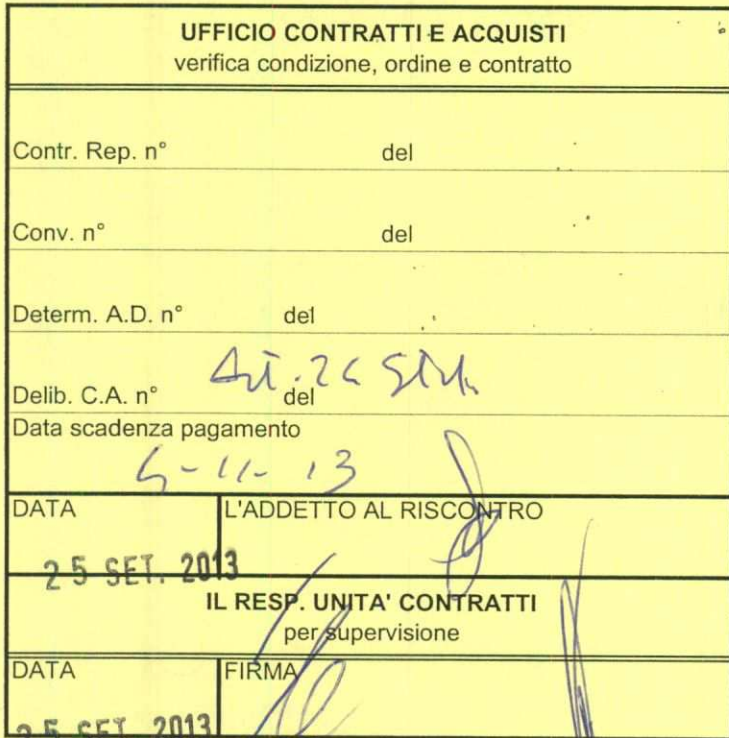 UFFICIO CONTRATTI E ACQUISTI
verifica condizione, ordine e contratto
Contr. Rep. n° del
Conv. n° del
Determ. A.D. n° del
Delib. C.A. n° del Art. 26
Data scadenza pagamento
-11-13
DATA L'ADDETTO AL RISCONTRO
25 SET. 2013
IL RESP. UNITA' CONTRATTI
per supervisione
DATA FIRMA
25 SET. 2013